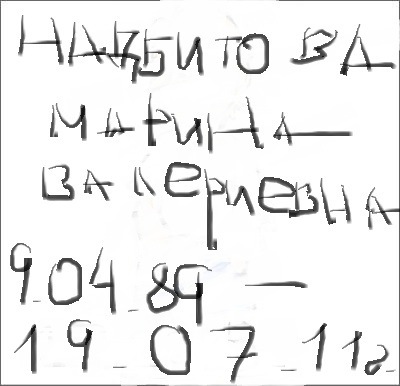 НАДБИТОВА
МАРИНА
ВАЛЕРИЕВНА
9.04.89 —
19.07.11г.